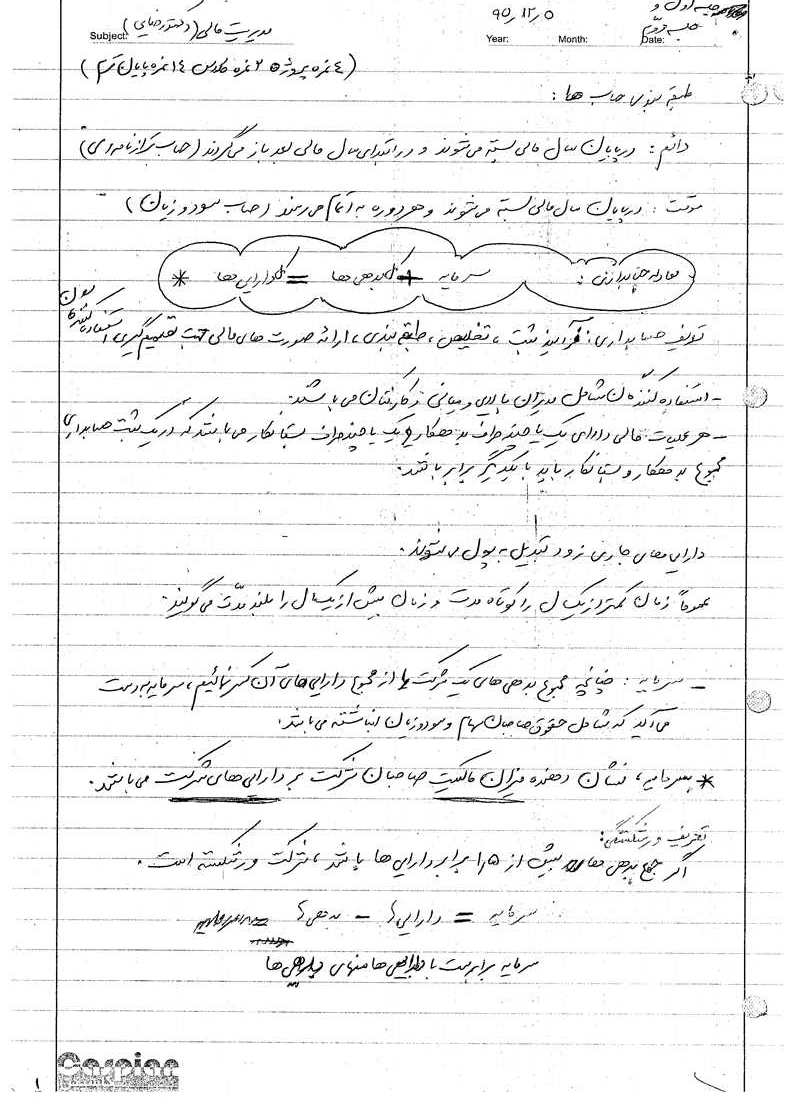 جلسه اول و
جلسه دوم
Subject: مدیریت مالی (دکتر رضایی)
۹۰,۱۲,۵
Year: Month: Date:
(٤ نمره پروژه ۲ نمره کلاس ۱٤ نمره پایان ترم)
طبقه بندی حساب ها :
دائم : در پایان سال مالی بسته می شوند و در ابتدای سال مالی بعد باز می گردند (حساب ترازنامه ای)
موقت : در پایان سال مالی بسته می شوند و هر دوره به اتمام می رسند (حساب سود و زیان)
معادله حسابداری : سرمایه + بدهی ها = دارایی ها *
تعریف حسابداری : فرآیند ثبت ، تلخیص ، طبقه بندی ، ارائه صورت های مالی جهت تصمیم گیری استفاده کنندگان
- استفاده کنندگان شامل مدیران بالایی و میانی و کارکنان می باشند.
- هر عملیات مالی دارای یک یا چند طرف بدهکار و یک یا چند طرف بستانکار می باشند که در یک ثبت حسابداری
مجموع بدهکار و بستانکار باید با یکدیگر برابر باشند.
دارایی های جاری زود تبدیل به پول می شوند.
عموماً زمان کمتر از یکسال را کوتاه مدت و زمان بیش از یکسال را بلند مدّت می گویند.
- سرمایه : چنانچه مجموع بدهی های یک شرکت را از مجموع دارایی های آن کسر نمائیم ، سرمایه بدست
می آید که شامل حقوق صاحبان سهام و سود و زیان انباشته می باشد.
* سرمایه ، نشان دهنده میزان مالکیت صاحبان شرکت بر دارایی های شرکت می باشد.
تعریف ورشکستگی:
اگر جمع بدهی ها بیش از ۱,۵ برابر دارایی ها باشد ، شرکت ورشکسته است.
سرمایه = دارایی ها - بدهی ها
سرمایه برابرست با دارایی ها منهای بدهی ها
Caspian
۱